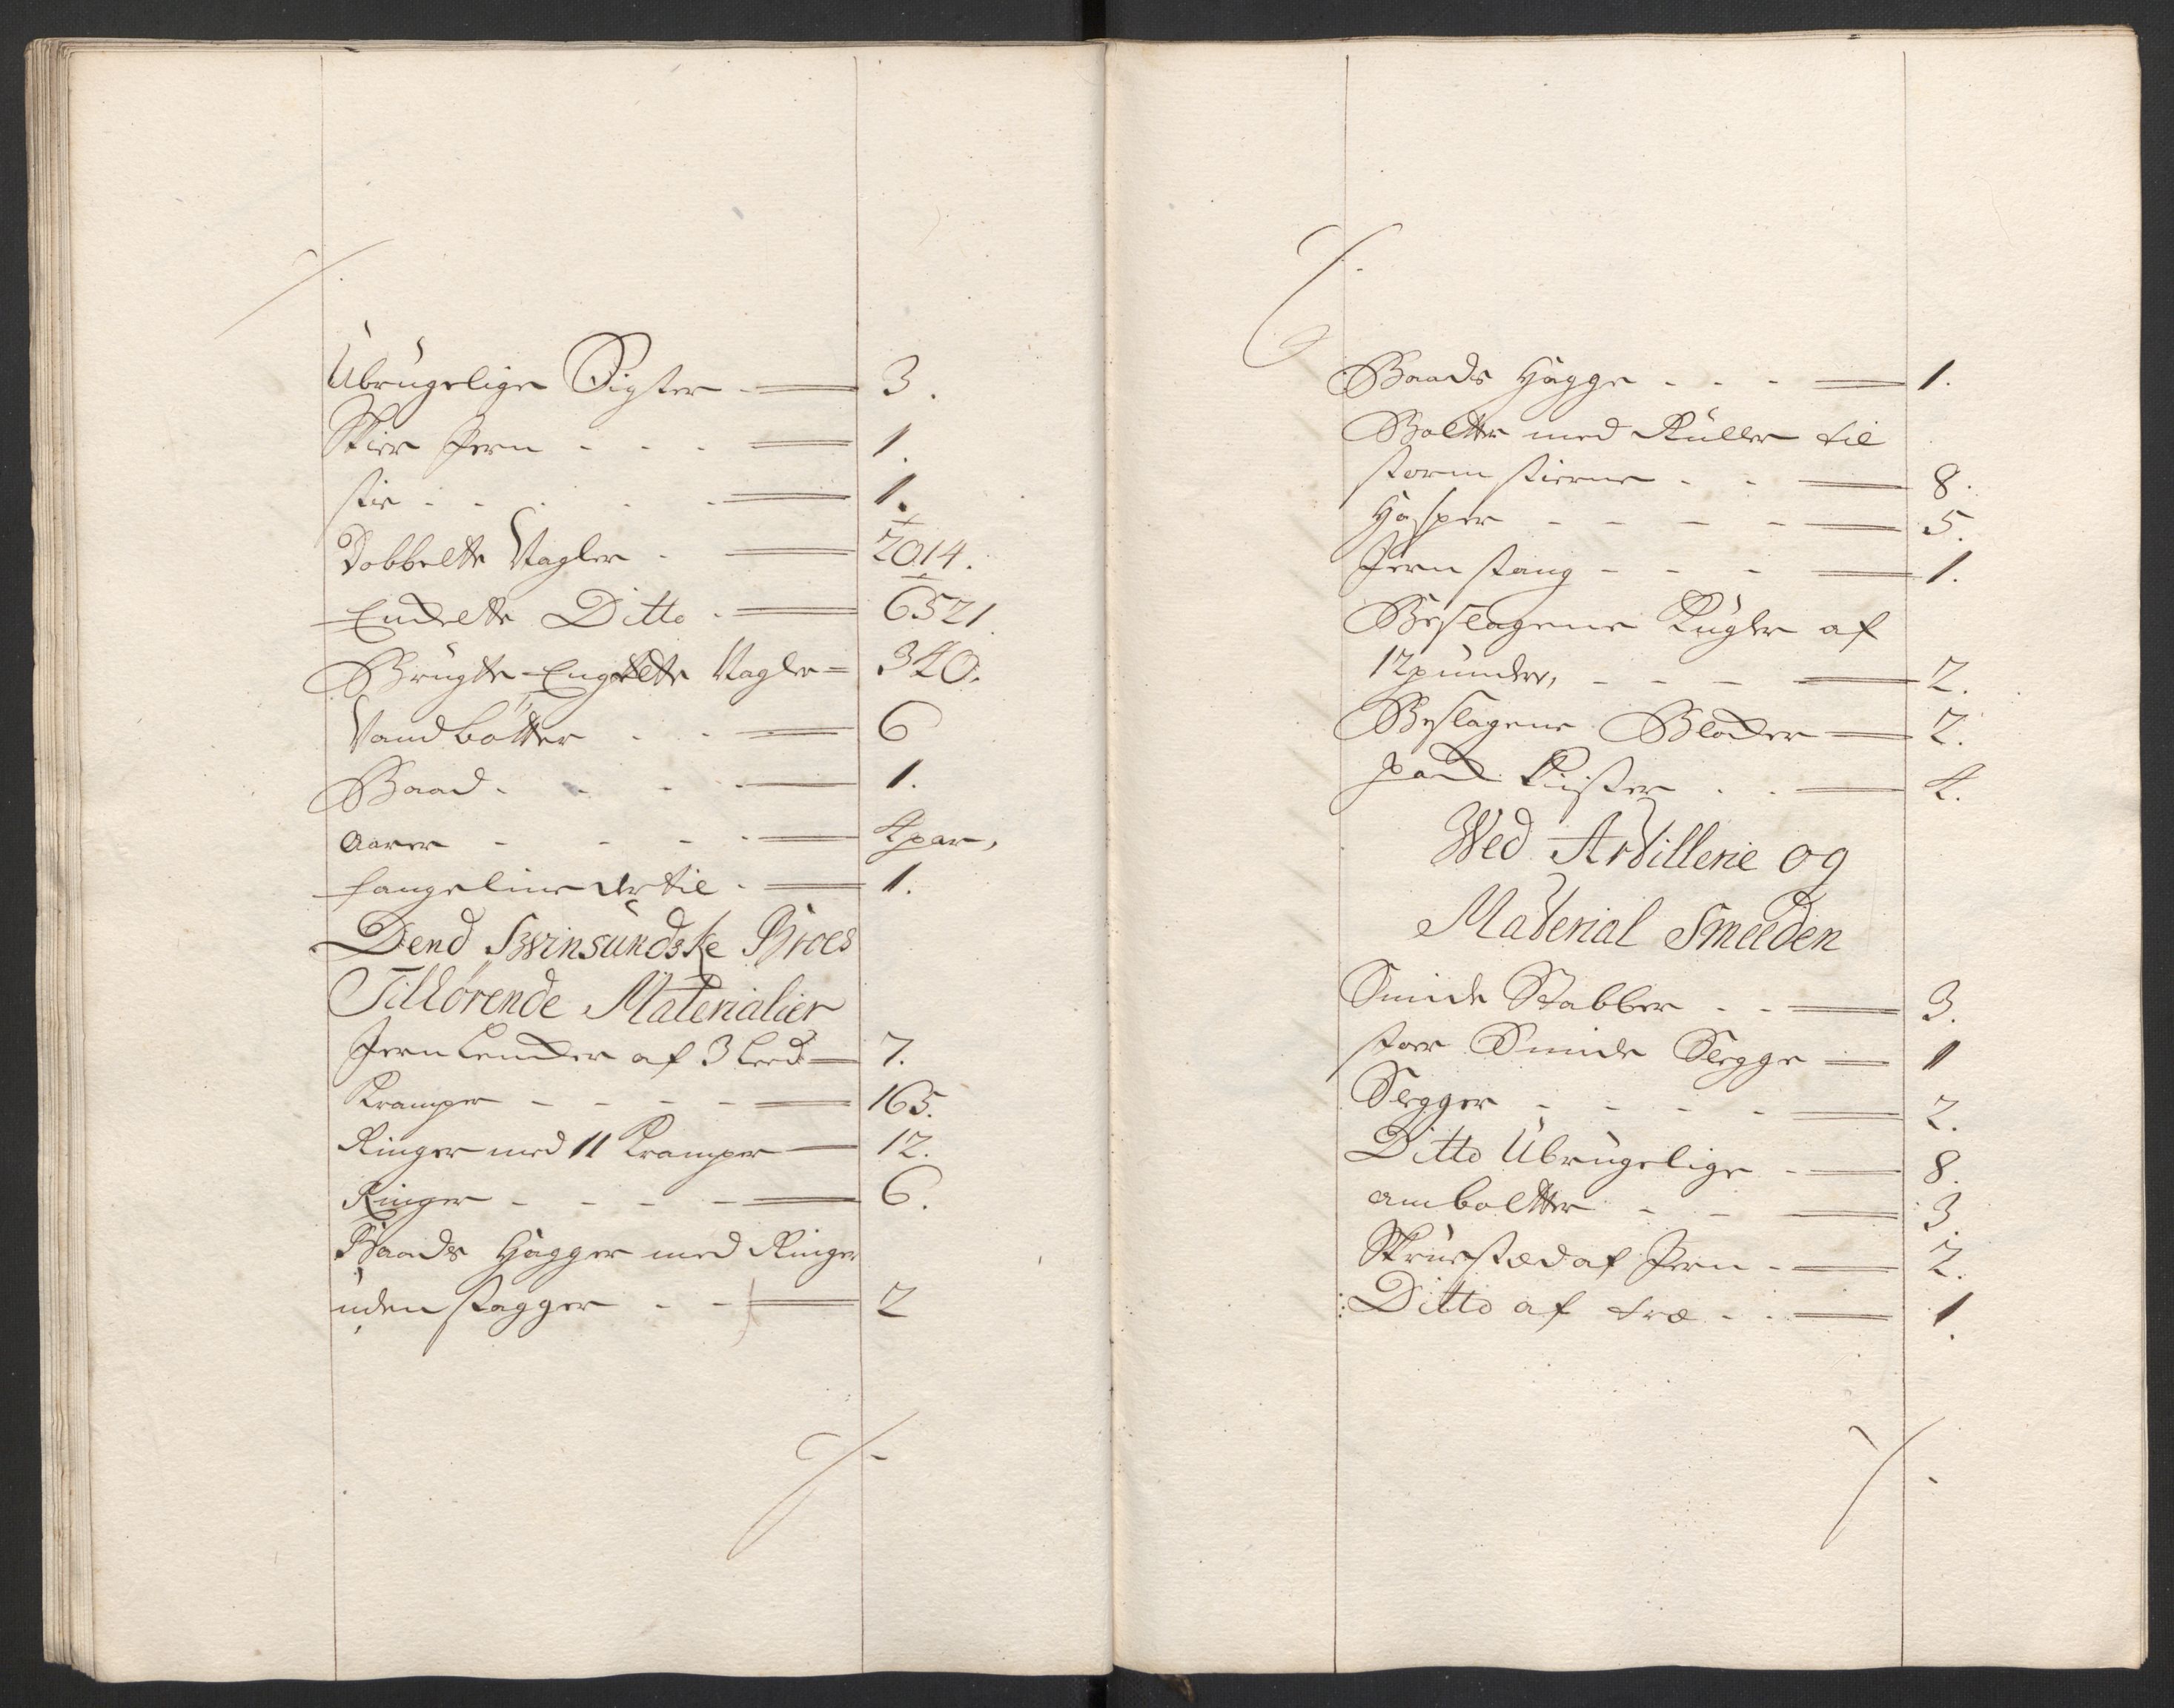 Ubrugelige Sigter - 3.
Skier Jern - - - 1.
stie - - - 1.
Dobbelte Nagler - 2014.
Enckelte Ditto - 6521.
Brugte Engelte Nagler 340.
Vandbötter - - 6
Baad - - - 1.
Aarer - - - - 4 par,
fangeline dertil - 1.
Dend Swinsundske Broes
Tilhörende Materialier
Jern Lencker af 3 Leed 7.
Kramper - - - - 165.
Ringer med 11 Kramper 12.
Ringer - - - - 6.
Baads Hagger med Ringer
uden stagger - - 2
Baads Hagge - - - 1.
Bolter med Ruller til
storm stierne - - 8.
Hasper - - - - 5.
Jern stang - - - 1.
Beslagene Kugler af
12 punder, - - - 2.
Beslagene Blocker 2.
pack Kister - - 4.
Wed Artillerie og
Material Smeeden
Smide Stabber - - 3.
stoer Smide Slegge 1
Slegger - - - - 2.
Ditto Ubrugelige - 8.
amboltter - - 3.
Skruestæd af Jern - 2.
Ditto af træ - - 1.